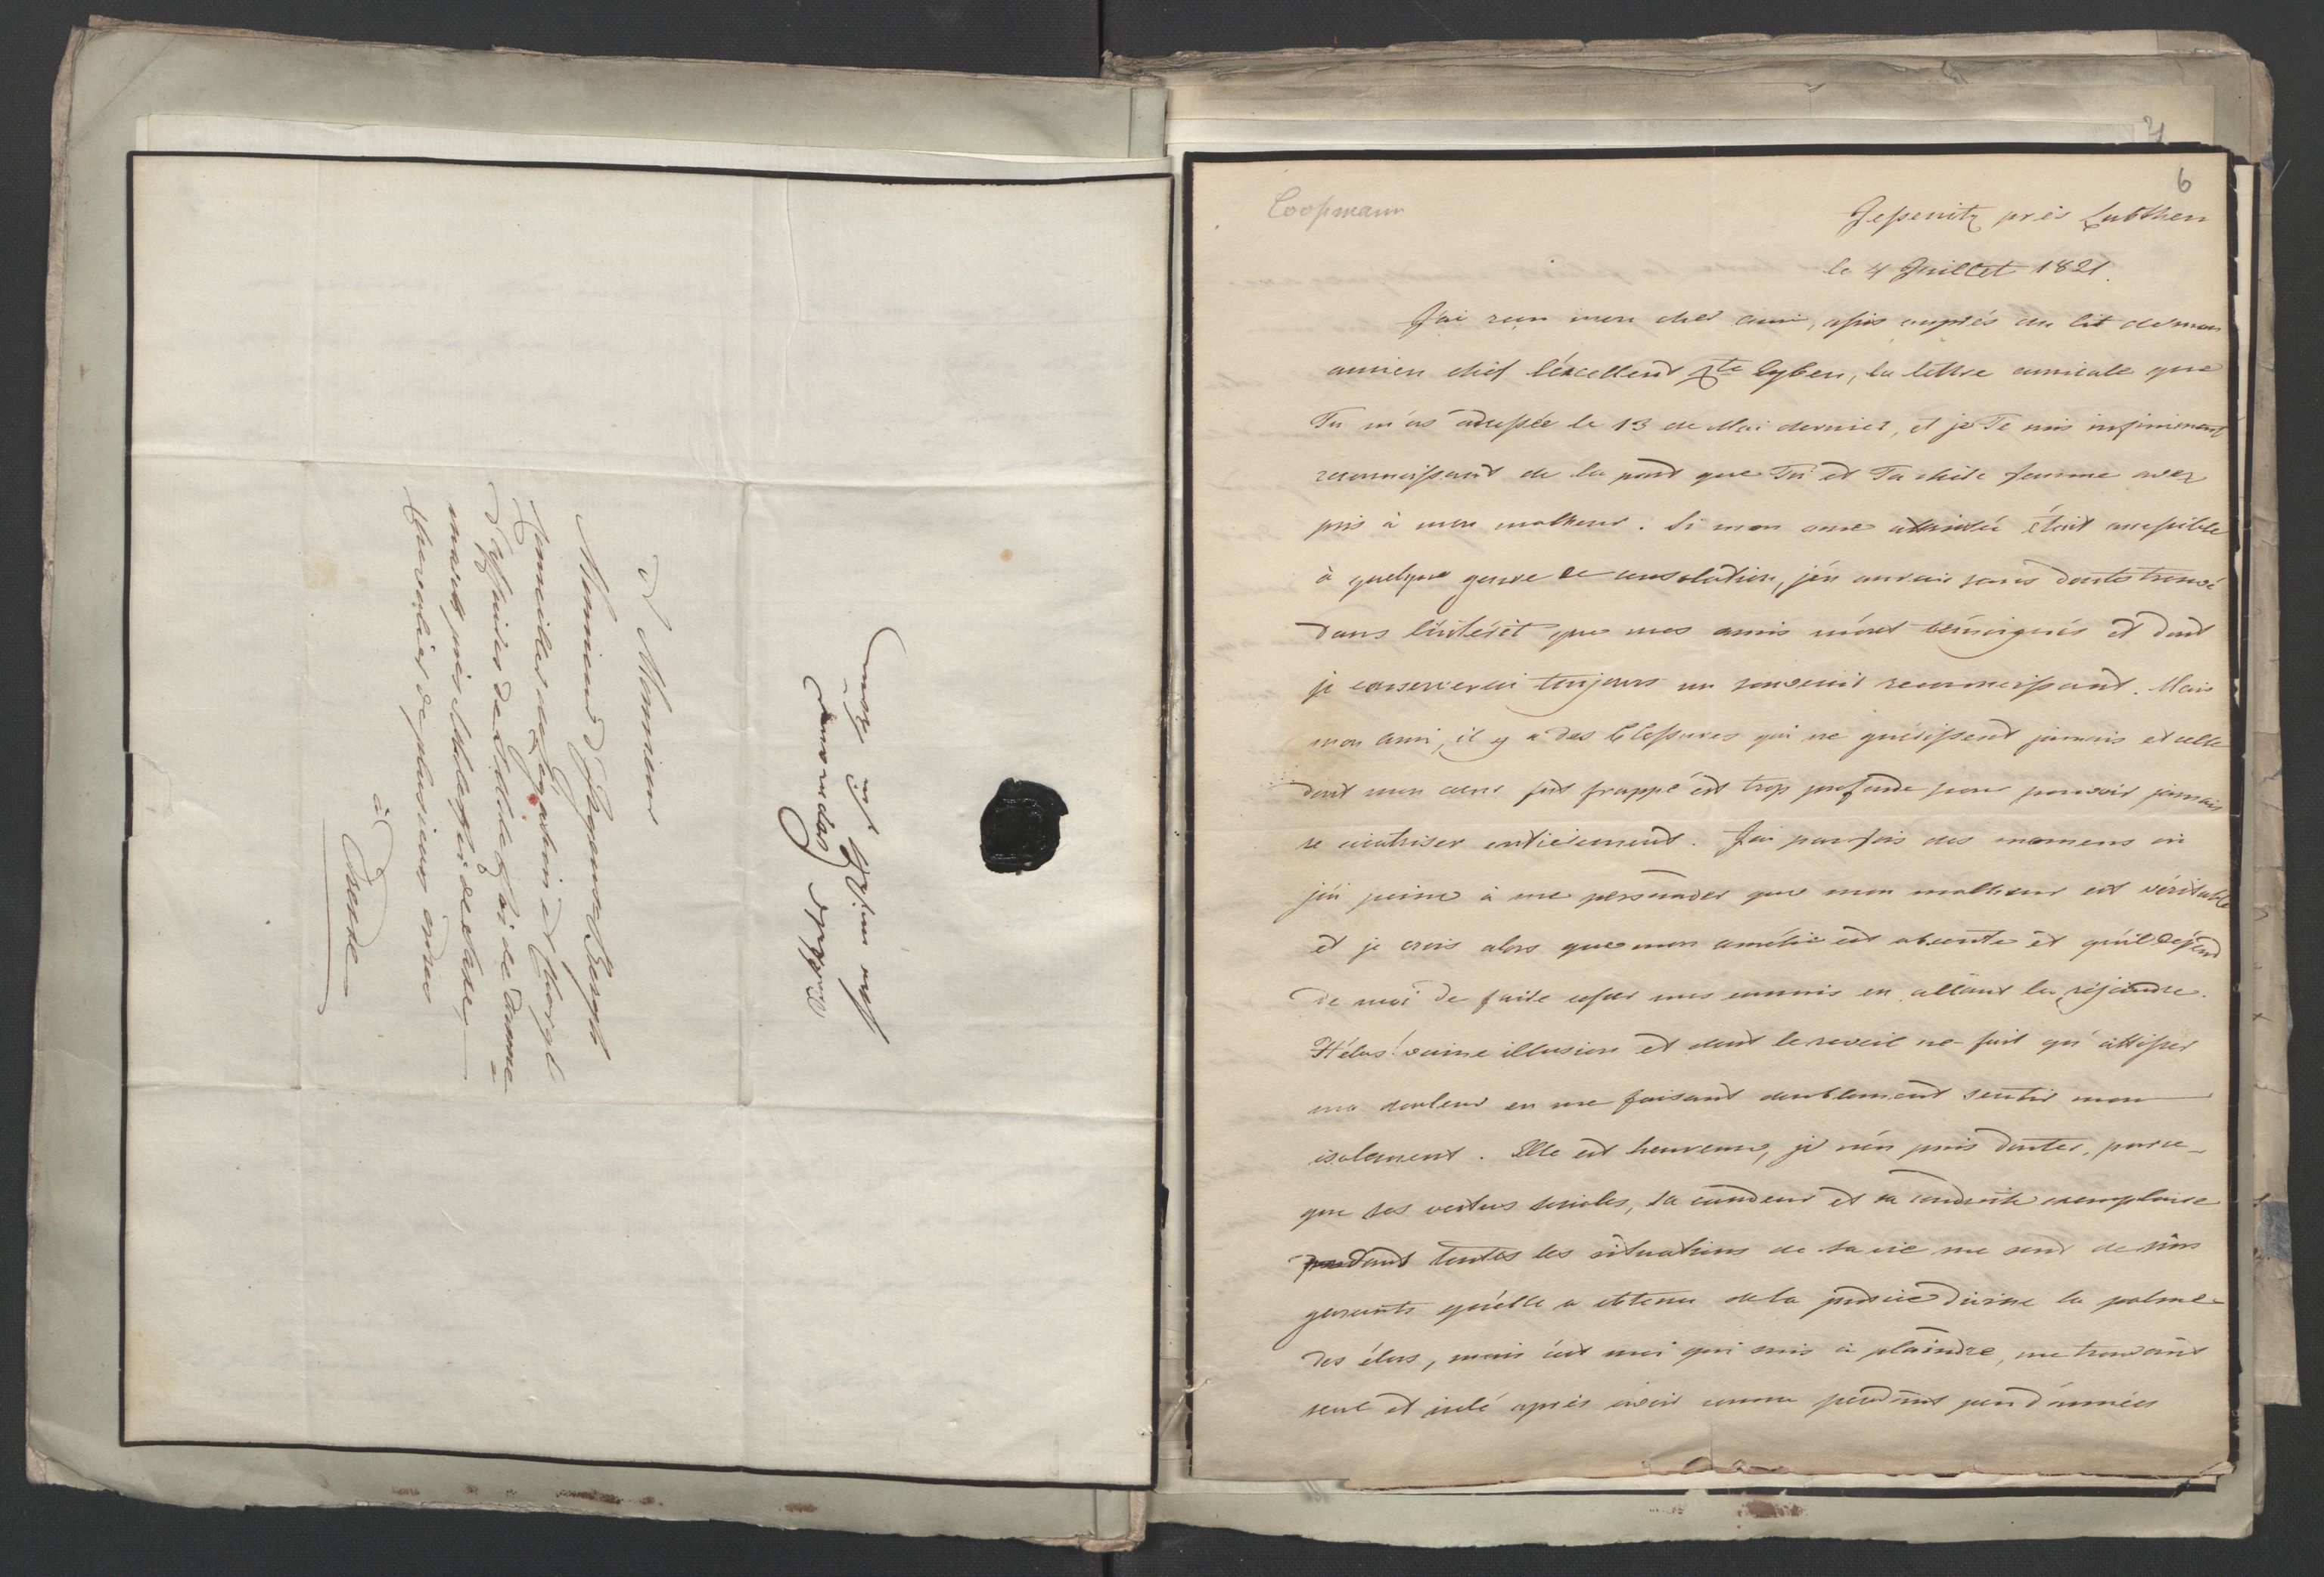 à Monsieur
Monsieur d'Jageman Bergh
Conseiller de Légation et chargé
d'affaires de S. M. le Roi de Danne=
mark près S. M. le Roi de Saxe,
Chevalier de plusieurs ordres
à
Dresde
7
6
Coopmann
Jessenitz près Lubthen
le 4 Juillet 1821.
J'ai reçu mon cher ami, assis auprès du lit de mon
ancien chéf l'éxcellent Cte Eyben, la lettre amicale que
Tu m'as adressée le 13 de Mai dernier, et je Te suis infiniment
reconnoissant de la part que Tu et Ta chère femme avez
pris à mon malheur. Si mon ame attristée étoit accessible
à quelque genre de consolation, j'én aurais sans doute trouvé
dans l'intérêt que mes amis m'ont témoignés et dont
je conserverai toujours un souvenir reconnoissant. Mais
mon ami, il y a des blessures qui ne guérissent jamais et celle
dont mon coeur fut frappé est trop profonde pour pouvoir jamais
se cicatriser entièrement. J'ai parfois des momens où
j'ai peine à me persuader que mon malheur est véritable
et je crois alors que mon amélie est absente et qu'il dépend
de moi de faire cesser mes ennuis en allant la réjoindre.
Hélas! vaine illusion et dont le reveil ne fait qu'attiser
ma douleur en me faisant doublement sentir mon
isolement. Elle est heureuse, je n'én puis douter, parce-
que ses vertus sociales, sa candeur et sa conduite exemplaire
dans toutes les situations de sa vie me sont de sûrs
garants qu'elle a obtenu de la justice divine la palme
des élus, mais c'est moi qui suis à plaindre, me trouvant
seul et isolé après avoir connu pendant peu d'années